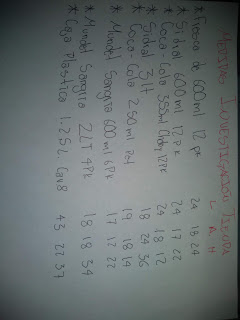 MEDIDAS INVESTIGACION TIJERA
L A H
* Fresca de 600 ml 12 pk 24 18 24
* Sidral 600 ml 12 Pk 24 17 22
* Coca-Cola 355ml 12Pk 24 18 12
* Sidral 3 Lt 18 24 36
* Coca-Cola 250 ml 19 18 19
* Mundet Sangria 600 ml 6Pk 17 12 22
* Mundet Sangria 2LT 4Pk 18 18 34
* Caja Plastica 1.25L 43 22 37